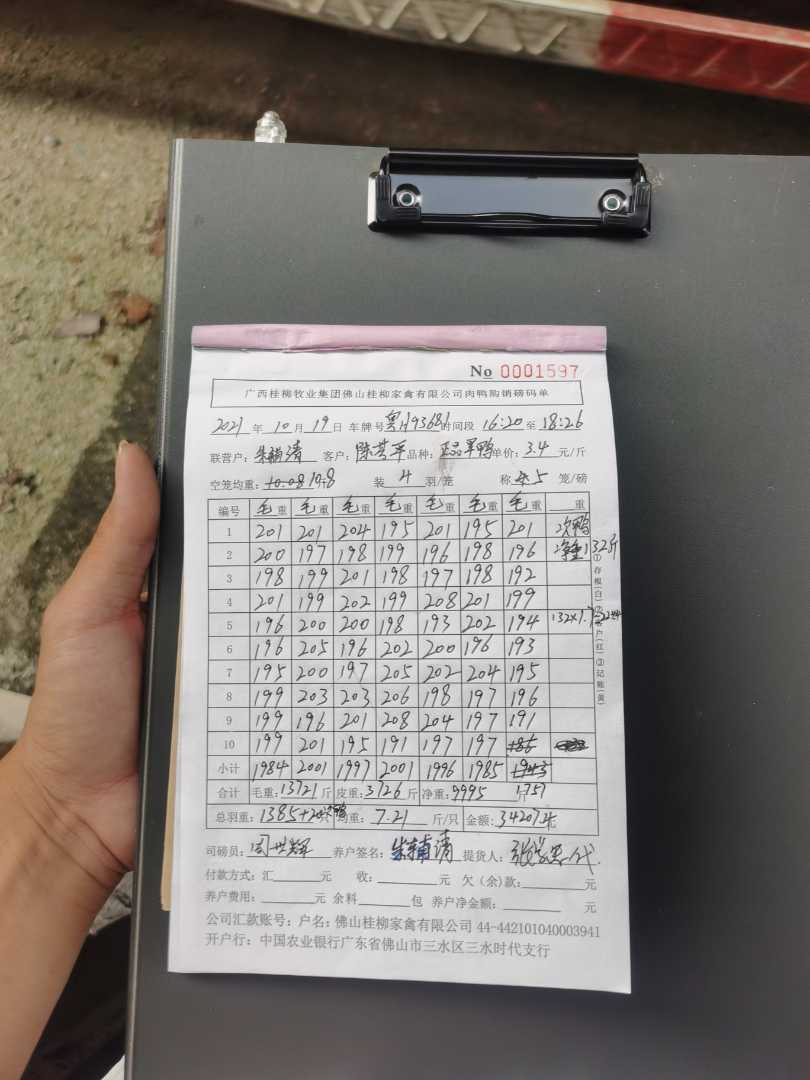 No 0001597
广西桂柳牧业集团佛山桂柳家禽有限公司肉鸭购销磅码单
2021 年 10 月 19 日 车牌号 粤 93681 时间段 16:20 至 18:26
联营户: 朱 清 客户: 陈 平 品种: 正品 鸭 单价: 3.4 元/斤
空笼均重: 装 4 羽/笼 称 5 笼/磅
编号 毛重 毛重 毛重 毛重 毛重 毛重 毛重 重
1 201 201 204 195 201 195 201 次鸭
2 200 197 198 199 196 198 196 净重132斤
3 198 199 201 198 197 198 192
4 201 199 202 199 208 201 199
5 196 200 200 198 193 202 194
6 196 205 196 202 200 196 193
7 195 200 197 205 202 204 195
8 199 203 203 206 198 197 196
9 199 196 201 208 204 197 191
10 199 201 195 191 197 197
小计 1984 2001 1997 2001 1996 1985
1757
合计 毛重: 13721 斤 皮重: 3726 斤 净重: 9995 斤
总羽重: 1385+20 只 均重: 7.21 斤/只 金额: 34207 元
司磅员: 周世辉 养户签名: 朱 清 提货人: 代
付款方式: 汇 元 收: 元 欠(余)款: 元
养户费用: 元 余料 包 养户净金额: 元
公司汇款账号: 户名: 佛山桂柳家禽有限公司 44-442101040003941
开户行: 中国农业银行广东省佛山市三水区三水时代支行
①存根(白)②客户(红)③记账(黄)